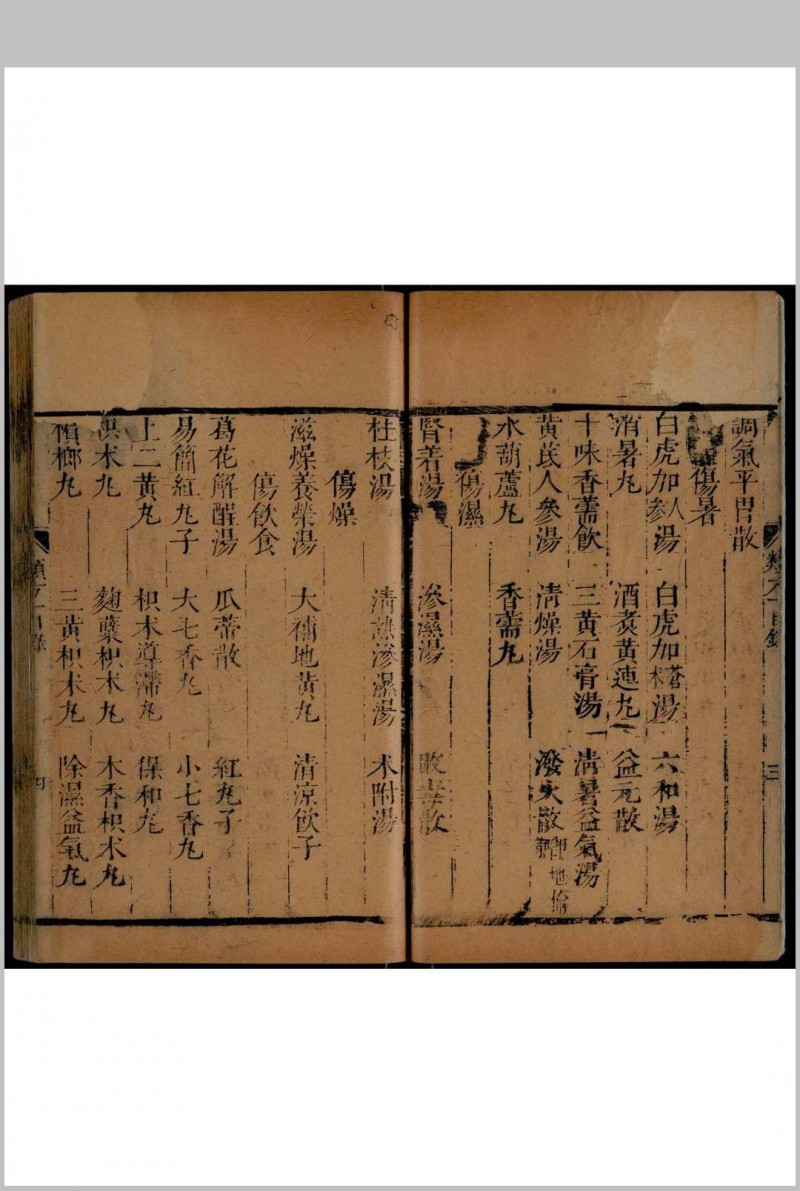 調氣平胃散
傷暑
白虎加人參湯 白虎加蒼朮湯 六和湯
消暑丸 酒煑黃連丸 益元散
十味香薷飲 三黃石膏湯 清暑益氣湯
黃芪人參湯 清燥湯 潑火散即地榆散
水葫蘆丸 香薷丸
傷濕
腎着湯 滲濕湯 敗毒散
桂枝湯 清熱滲濕湯 术附湯
傷燥
滋燥養榮湯 大補地黃丸 清凉飲子
傷飲食
葛花解酲湯 瓜蒂散 紅丸子
易簡紅丸子 大七香丸 小七香丸
上二黃丸 枳术導滯丸 保和丸
枳术丸 麴蘗枳术丸 木香枳术丸
檳榔丸 三黃枳术丸 除濕益氣丸
類方一目錄 三
類方一目錄 四